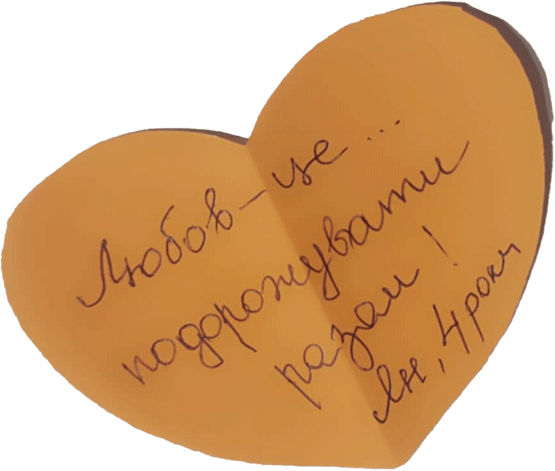 Любов - це...
подорожувати
разом!
Ян, 4 роки